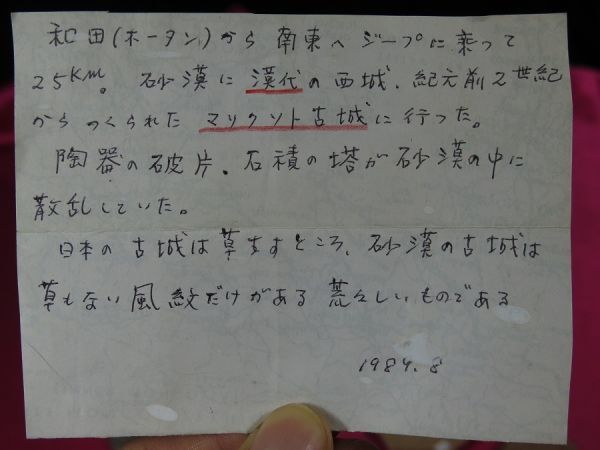 和田(ホータン)から南東へジープに乗って
25KM。砂漠に漢代の西城、紀元前2世紀
からつくられたマリクソト古城に行った。
陶器の破片、石積の塔が砂漠の中に
散乱していた。
日本の古城は草むすところ、砂漠の古城は
草もない風紋だけがある荒々しいものである
1984.8